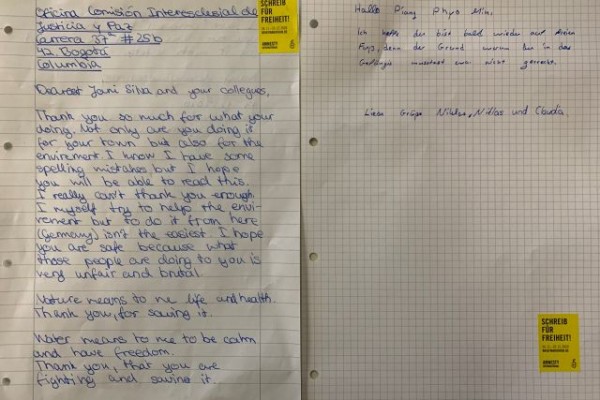 Oficina Comisión Intereclesial de
Justicia y Paz
Carrera 37ª #25b
42. Bogotá
Columbia
Dearest Jani Silva and your collegues,
Thank you so much for what your
doing. Not only are you doing is
for your town but also for the
enviremant. I know I have some
spelling mistakes but I hope
you will be able to read this.
I really can't thank you enough.
I myself try to help the envi-
rement but to do it from here
(Germany) isn't the easiest. I hope
you are safe because what
those people are doing to you is
very unfair and brutal.
Nature means to me life and health.
Thank you, for saving it.
Water means to me to be calm
and have freedom.
Thank you, that you are
fighting and saving it.
SCHREIB
FÜR
FREIHEIT!
AMNESTY
Hallo Paing Phyo Min,
Ich hoffe du bist bald wieder auf freien
Fuß, denn der Grund warum du in das
Gefängis musstest war nicht gerecht.
Liebe Grüße Nikolas, Niklas und Claudia
SCHREIB
FÜR
FREIHEIT!
AMNESTY